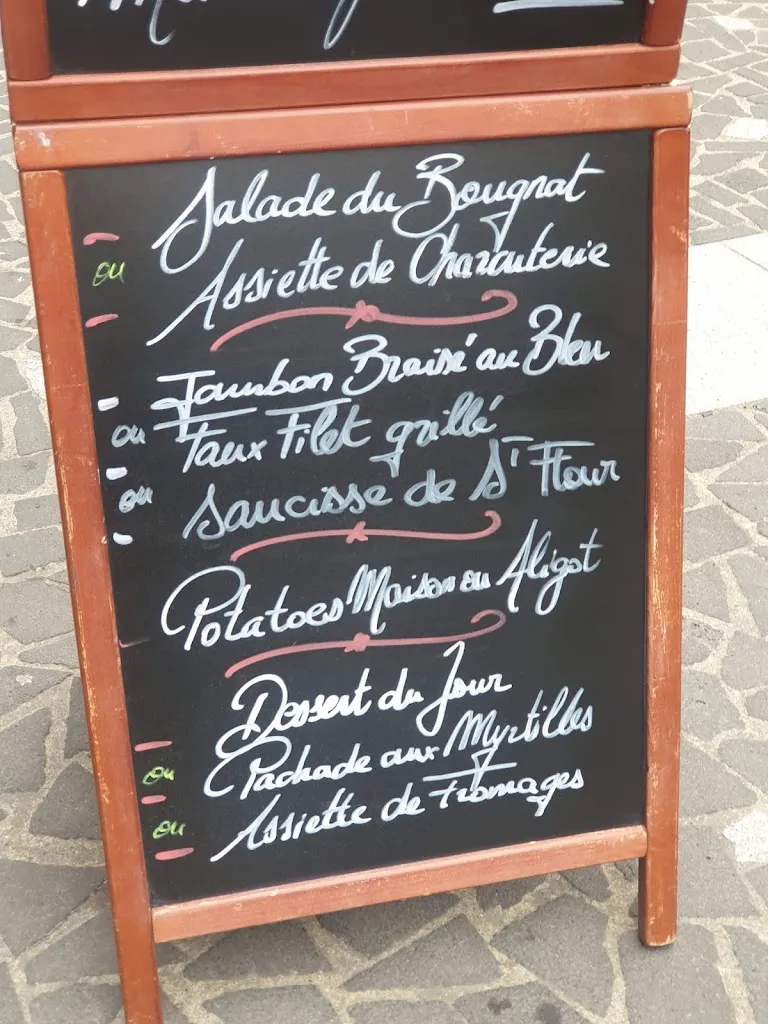 Salade du Bougnat
ou
Assiette de Charcuterie
Jambon Braisé au Bleu
ou
Faux Filet grillé
ou
Saucisse de St Flour
Potatoes Maison ou Aligot
Dessert du Jour
ou
Pachade aux Myrtilles
ou
Assiette de Fromages